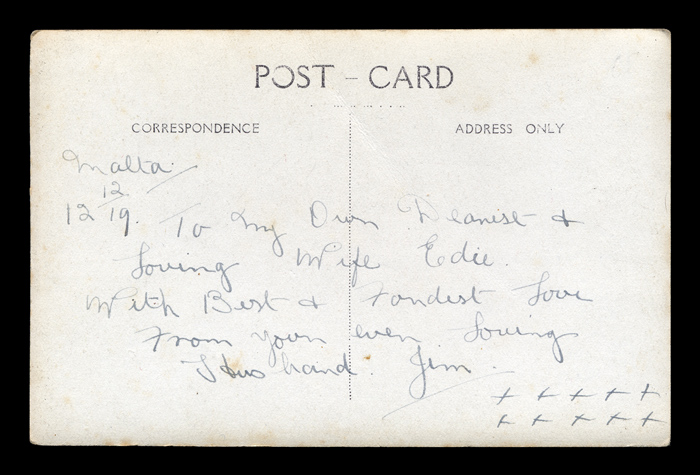 POST - CARD
CORRESPONDENCE
ADDRESS ONLY
Malta.
12.
12 19. To My Own Dearest &
Loving Wife Edie.
With Best & Fondest Love
From your ever Loving
Husband. Jim.
+ + + + +
+ + + + +